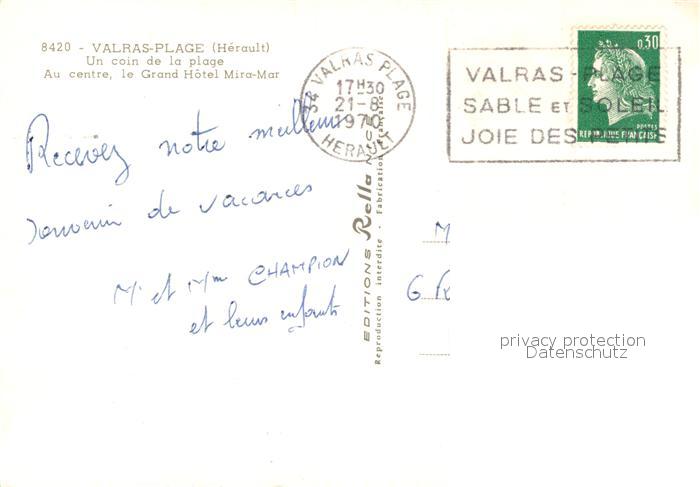 8420 - VALRAS-PLAGE (Hérault)
Un coin de la plage
Au centre, le Grand Hôtel Mira-Mar
34 VALRAS PLAGE
17H30
21-8
1970
HERAULT
VALRAS-PLAGE
SABLE ET SOLEIL
JOIE DES
0,30
POSTES
REPUBLIQUE FRANÇAISE
Recevez notre meilleur
souvenir de vacances
Mr et Mme CHAMPION
et leurs enfants
EDITIONS Rella
Reproduction interdite - Fabrication
M
G
privacy protection
Datenschutz